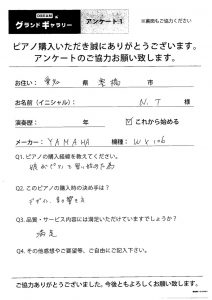 グランドギャラリー アンケート1 ※裏面もご協力ください
ピアノ購入いただき誠にありがとうございます。
アンケートのご協力お願い致します。
お住い： 愛知 県 豊橋 市
お名前（イニシャル）： N.T 様
演奏歴： 年 ☑ これから始める
メーカー：YAMAHA 機種：W×106
Q1. ピアノ購入経緯を教えてください。
娘がピアノを習い始めた為
Q2. このピアノの購入時の決め手は？
デザイン、音の響き
Q3. 品質・サービス内容には満足いただけていますでしょうか？
満足
Q4. その他感想やご要望等、ご自由にご記入下さい。
ご協力ありがとうございました。今後ともよろしくお願い致します。